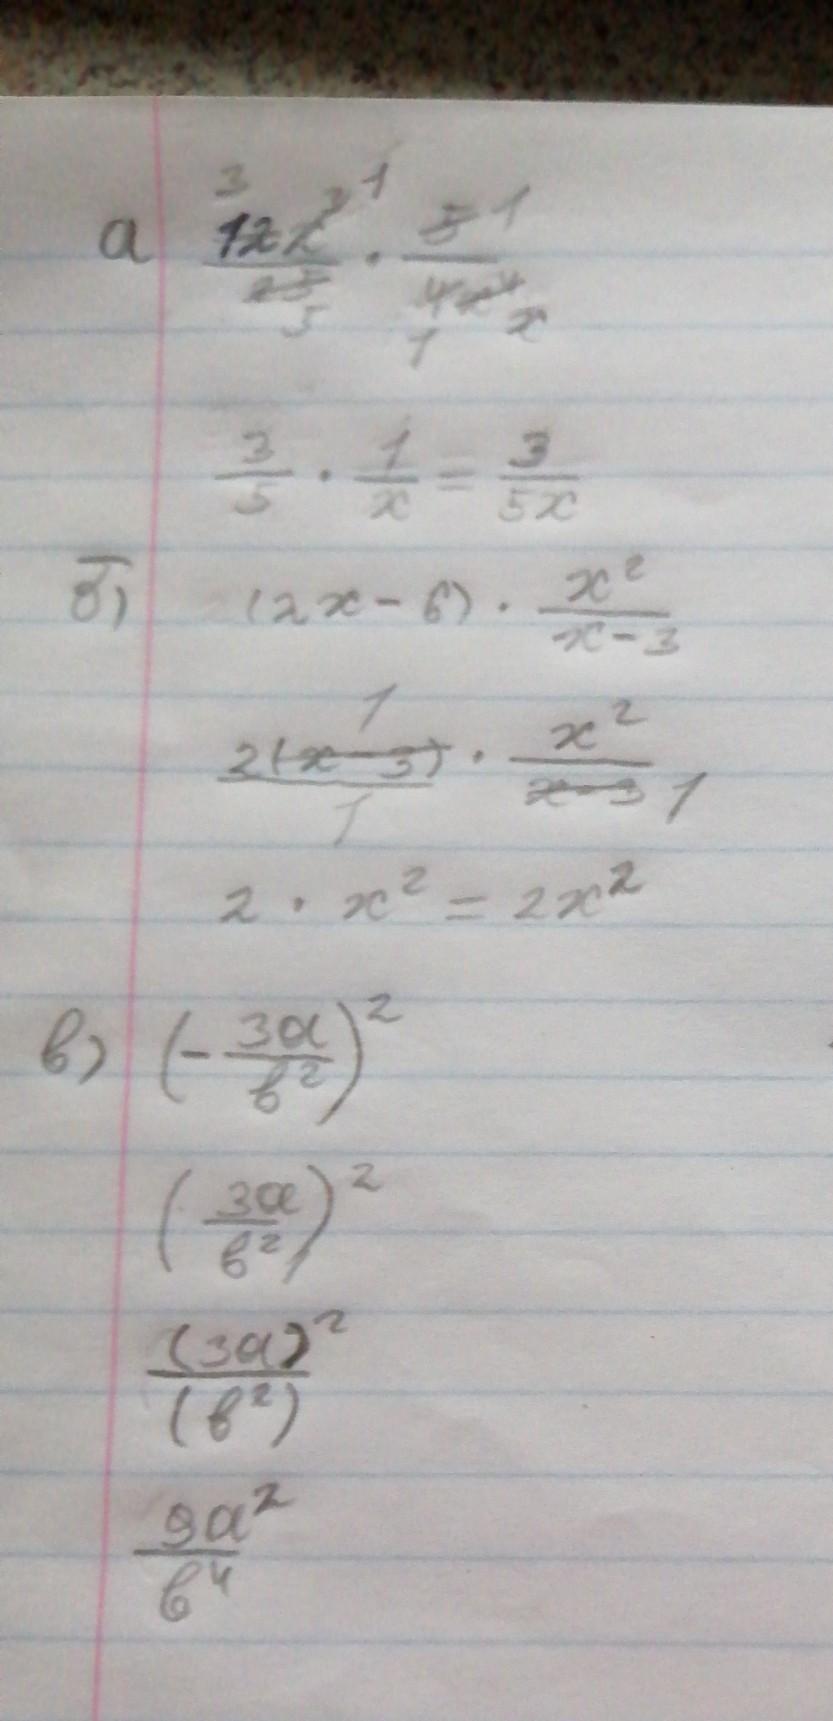 а 12x³/25 · 5/4x⁴ 3 1 5 1 1 x
3/5 · 1/x = 3/5x
б) (2x - 6) · x²/x-3
2(x-3)/1 · x²/x-3 1 1
2 · x² = 2x²
в) (-3a/b²)²
(3a/b²)²
(3a)²/(b²)
9a²/b⁴